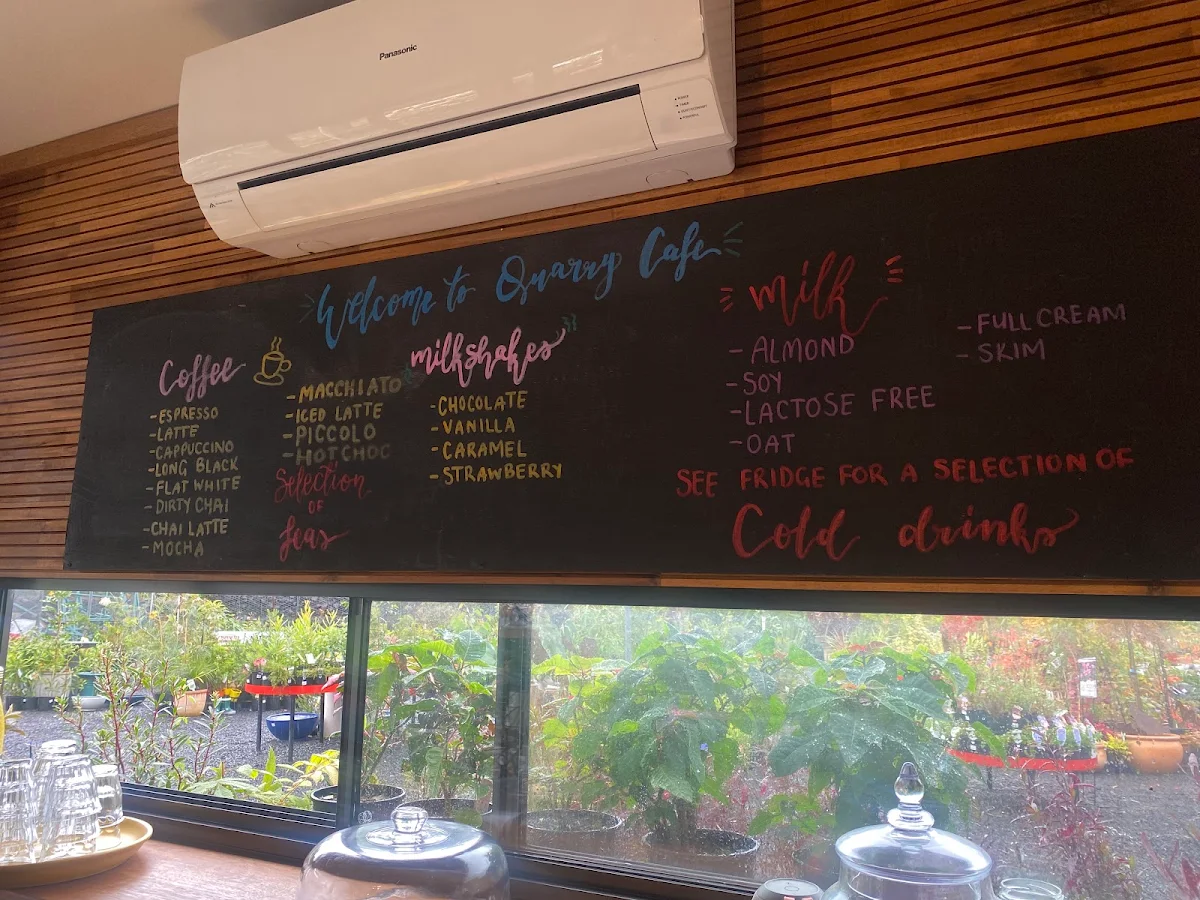 Panasonic
Welcome to Quarry Cafe
Coffee
-ESPRESSO
-LATTE
-CAPPUCCINO
-LONG BLACK
-FLAT WHITE
-DIRTY CHAI
-CHAI LATTE
-MOCHA
-MACCHIATO
-ICED LATTE
-PICCOLO
-HOT CHOC
Selection
OF
Teas
milkshakes
-CHOCOLATE
-VANILLA
-CARAMEL
-STRAWBERRY
milk
-ALMOND
-SOY
-LACTOSE FREE
-OAT
-FULL CREAM
-SKIM
SEE FRIDGE FOR A SELECTION OF
Cold drinks